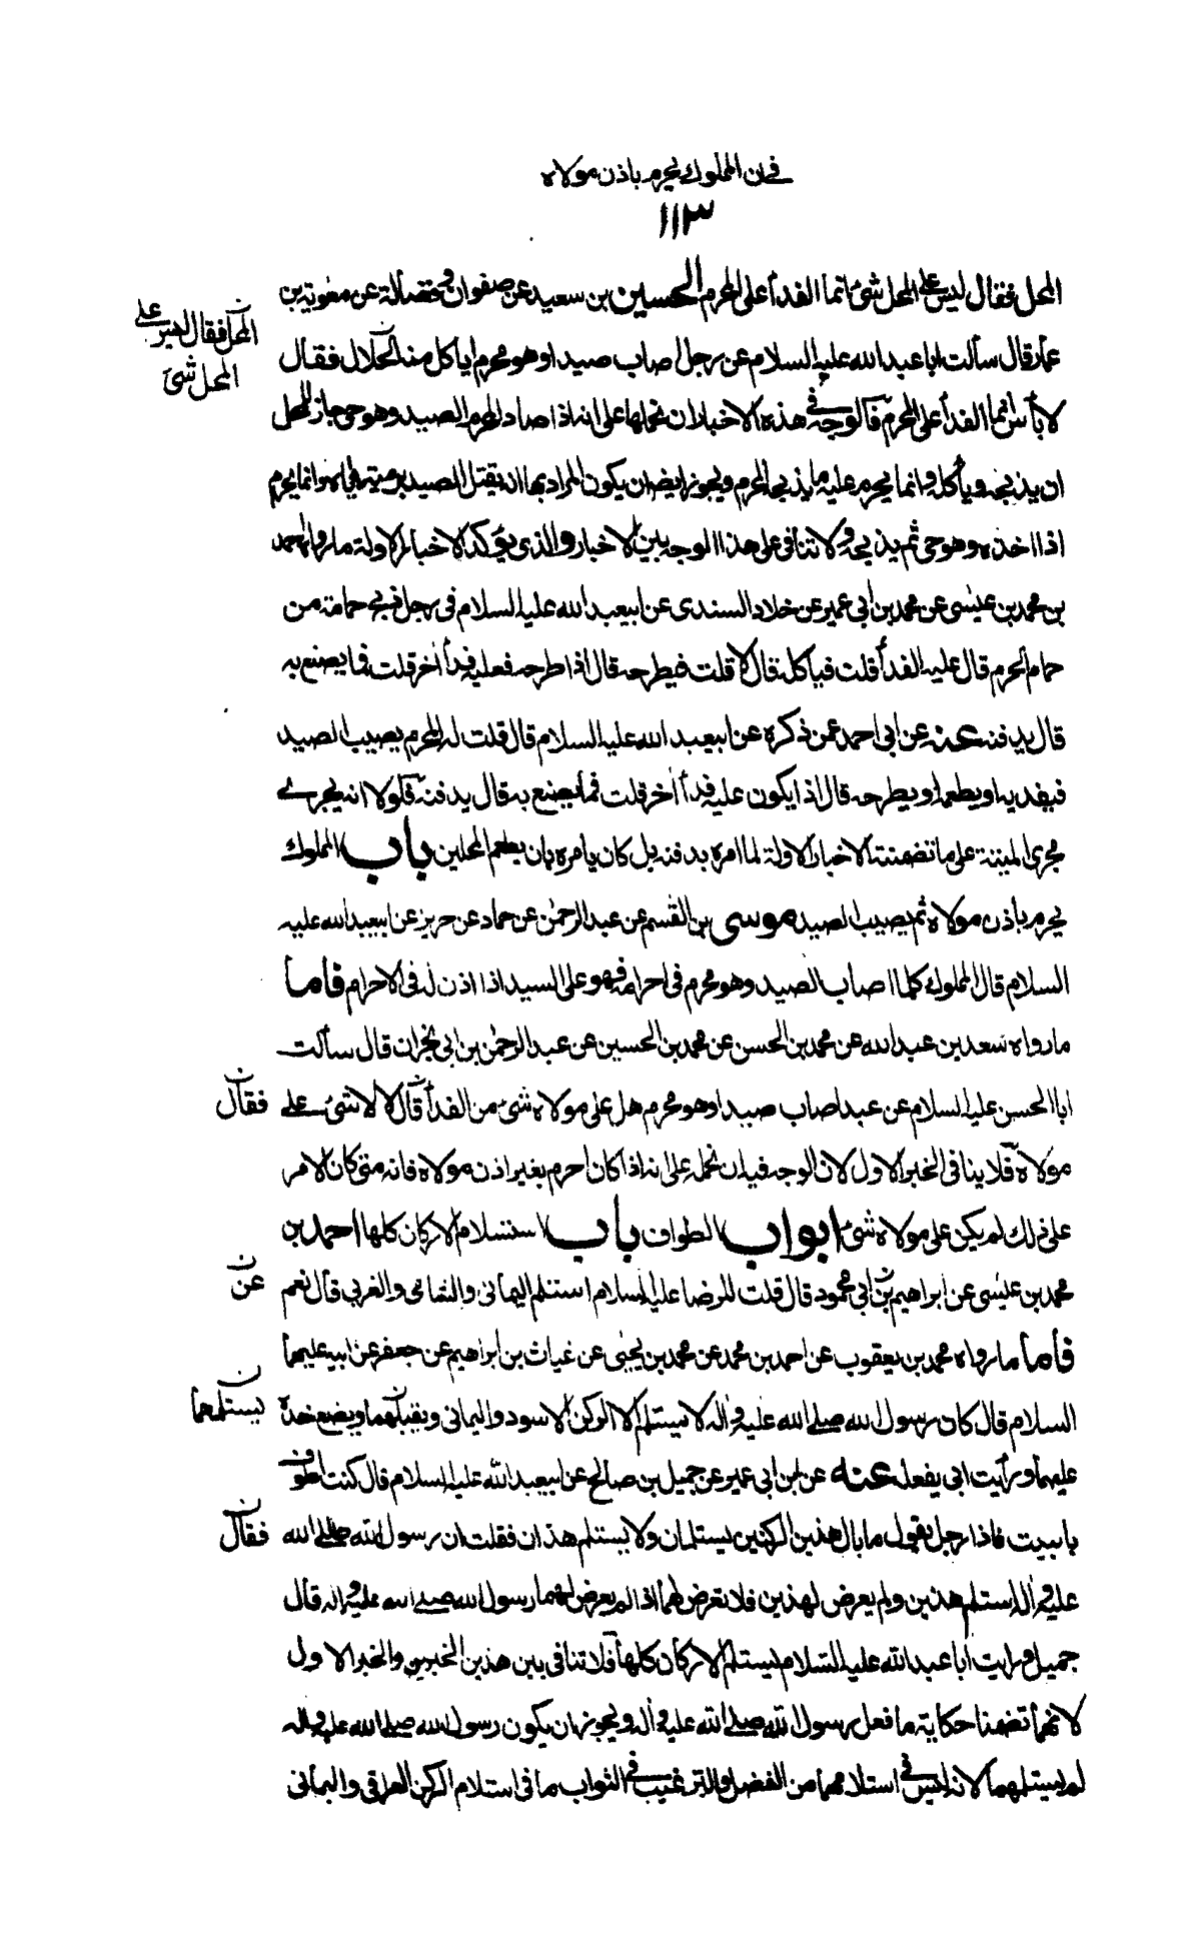 في ان المملوك يحرم باذن مولاه
١١٣
المحل فقال ليس على المحل شئ انما الفدأ على المحرم الحسين بن سعيد عن صفوان وفضالة عن معوية بن
المحل فقال ليس على
المحل شئ
عمار قال سألت ابا عبد الله عليه السلام عن رجل اصاب صيدا وهو محرم اياكل منه الحلال فقال
لا بأس انما الفدأ على المحرم فالوجه في هذه الاخبار ان نحملها على انه اذا صاد المحرم الصيد وهو حي جاز للمحل
ان يذبحه ويأكله وانما يحرم عليه ما يذبحه المحرم ويجوز ايضا ان يكون المراد بها انه يقتل الصيد برميته اياه وانما يحرم
اذا اخذه وهو حي ثم يذبحه ولا تنافي على هذا الوجه بين الاخبار والذي يؤكد الاخبار الاولة ما رواه احمد
بن محمد بن عيسى عن محمد بن ابي عمير عن خلاد السندي عن ابيعبد الله عليه السلام في رجل ذبح حمامة من
حمام الحرم قال عليه الفدأ قلت فياكله قال لا قلت فيطرحه قال اذا طرحه فعليه فدأ اخر قلت فما يصنع به
قال يدفنه عنه عن ابي احمد عمن ذكره عن ابيعبد الله عليه السلام قال قلت له المحرم يصيب الصيد
فيفديه او يطعمه او يطرحه قال اذا يكون عليه فدأ اخر قلت فما يصنع به قال يدفنه فلولا انه يجري
مجرى الميتة على ما تضمنته الاخبار الاولة لما امره بدفنه بل كان يامره بان يطعم المحلين باب المملوك
يحرم باذن مولاه ثم يصيب الصيد موسى بن القسم عن عبد الرحمن عن حماد عن حريز عن ابيعبد الله عليه
السلام قال المملوك كلما اصاب الصيد وهو محرم في احرامه فهو على السيد اذا اذن له في الاحرام فاما
ما رواه سعد بن عبد الله عن محمد بن الحسن عن محمد بن الحسين عن عبد الرحمن بن ابي نجران قال سألت
ابا الحسن عليه السلام عن عبد اصاب صيدا وهو محرم هل على مولاه شئ من الفدأ قال لا لا شئ على
فقال ن
مولاه فلا ينافي الخبر الاول لان الوجه فيه ان نحمله على انه اذا كان احرم بغير اذن مولاه فانه متى كان الامر
على ذلك لم يكن على مولاه شئ ابواب الطواف باب استسلام الاركان كلها احمد بن
محمد بن عيسى عن ابراهيم بن ابي محمود قال قلت للرضا عليه السلام استلم اليماني والشامي والغربي قال نعم
عن ن
فاما ما رواه محمد بن يعقوب عن احمد بن محمد عن محمد بن يحيى عن غياث بن ابراهيم عن جعفر عن ابيه عليهما
السلام قال كان رسول الله صلى الله عليه واله لا يستلم الا الركن الاسود واليماني ويقبلهما ويضع خده
يستلمهما ن
عليهما ورأيت ابي يفعله عنه عن ابن ابي عمير عن جميل بن صالح عن ابيعبد الله عليه السلام قال كنت اطوف
بالبيت فاذا رجل يقول ما بال هذين الركنين يستلمان ولا يستلم هذان فقلت ان رسول الله صلى الله
فقال ن
عليه واله استلم هذين ولم يعرض لهذين فلا تعرض لهما اذا لم يعرض لهما رسول الله صلى الله عليه واله قال
جميل ورايت ابا عبد الله عليه السلام يستلم الاركان كلها فلا تنافي بين هذين الخبرين والخبر الاول
لانهما تضمنا حكاية ما فعل رسول الله صلى الله عليه واله ويجوز ان يكون رسول الله صلى الله عليه واله
لم يستلمهما لانه ليس في استلامهما من الفضل والترغيب في الثواب ما في استلام الركن العراقي واليماني